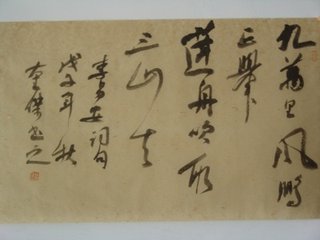 九萬里風鵬
正舉
蓬舟吹取
三山去
李易安词句
戊子年秋